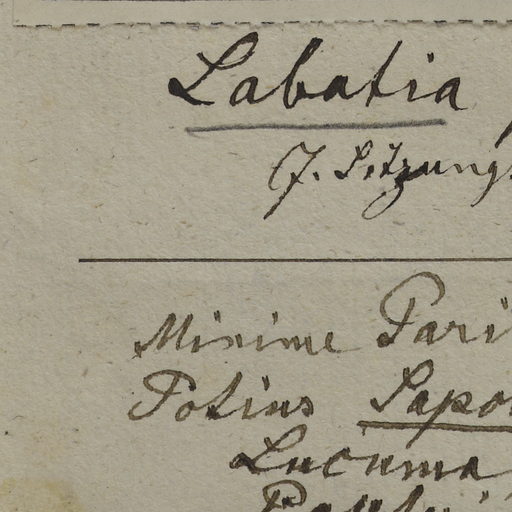 Labatia
J. Sitzungs
Minime Pari
Potius Sapo
Lucuma